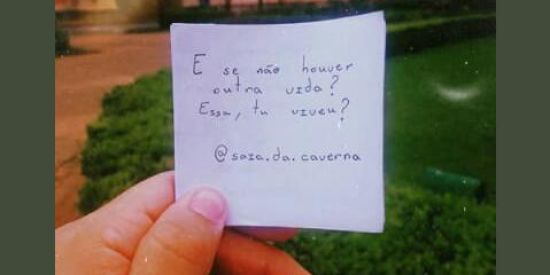 E se não houver
outra vida?
Essa, tu viveu?
@saia.da.caverna